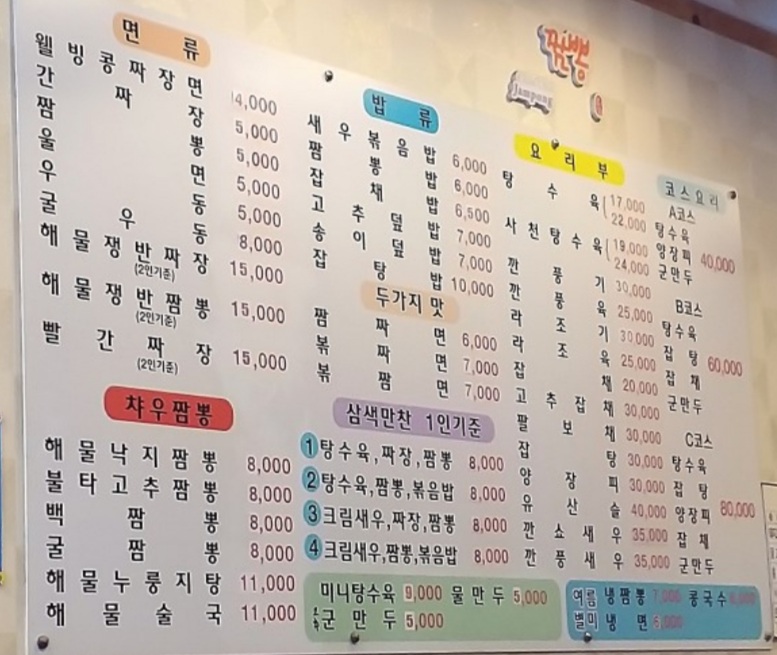 짬뽕
Jampong
면류
웰빙콩짜장면 4,000
간짜장 5,000
짬뽕 5,000
울면 5,000
우동 5,000
굴우동 8,000
해물쟁반짜장 15,000
(2인기준)
해물쟁반짬뽕 15,000
(2인기준)
빨간짜장 15,000
(2인기준)
챠우짬뽕
해물낙지짬뽕 8,000
불타고추짬뽕 8,000
백짬뽕 8,000
굴짬뽕 8,000
해물누룽지탕 11,000
해물술국 11,000
밥류
새우볶음밥 6,000
짬뽕밥 6,000
잡채밥 6,500
고추덮밥 7,000
송이덮밥 7,000
잡탕밥 10,000
두가지 맛
짬짜면 6,000
볶짜면 7,000
볶짬면 7,000
삼색만찬 1인기준
1 탕수육,짜장,짬뽕 8,000
2 탕수육,짬뽕,볶음밥 8,000
3 크림새우,짜장,짬뽕 8,000
4 크림새우,짬뽕,볶음밥 8,000
미니탕수육 9,000 물만두 5,000
군만두 5,000
요리부
탕수육 17,000
22,000
사천탕수육 19,000
24,000
깐풍기 30,000
깐풍육 25,000
라조기 30,000
라조육 25,000
잡채 20,000
고추잡채 30,000
팔보채 30,000
잡탕 30,000
양장피 30,000
유산슬 40,000
깐쇼새우 35,000
깐풍새우 35,000
코스요리
A코스
탕수육
양장피 40,000
군만두
B코스
탕수육
잡탕 60,000
잡채
군만두
C코스
탕수육
잡탕
양장피 80,000
잡채
군만두
여름 냉짬뽕 7,000 콩국수
별미 냉면 6,000